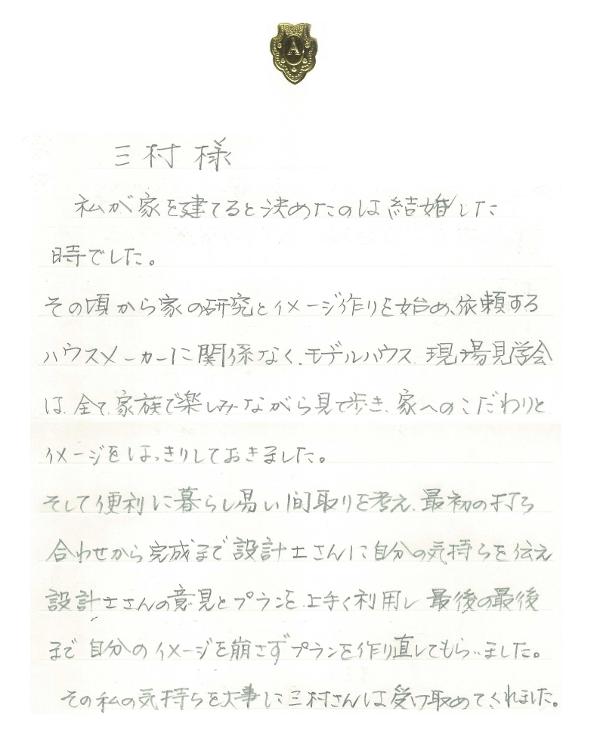 A
三村様
私が家を建てると決めたのは結婚した
時でした。
その頃から家の研究とイメージ作りを始め、依頼する
ハウスメーカーに関係なく、モデルハウス、現場見学会
は、全て、家族で楽しみながら見て歩き、家へのこだわりと
イメージをはっきりしておきました。
そして便利に暮らし易い間取りを考え、最初の打ち
合わせから完成まで設計士さんに自分の気持ちを伝え
設計士さんの意見とプランを、上手く利用し、最後の最後
まで自分のイメージを崩さずプランを作り直してもらいました。
その私の気持ちを大事に三村さんは受け取めてくれました。